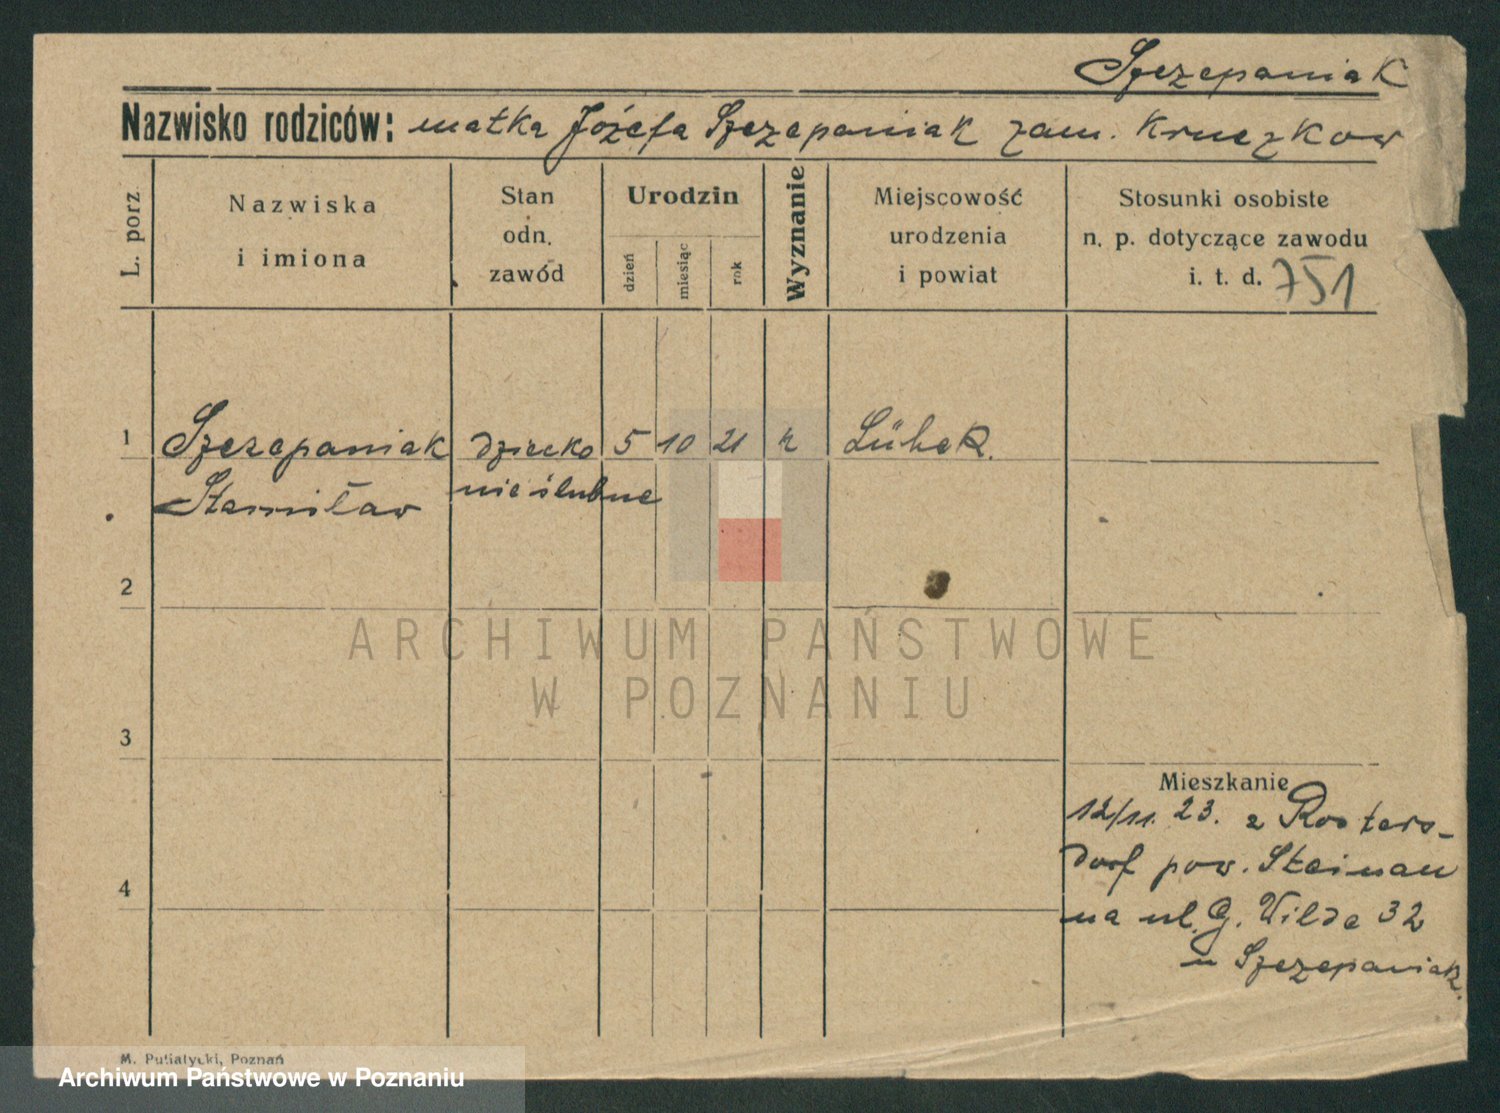 Szczepaniak
Nazwisko rodziców: matka Józefa Szczepaniak zam. Kruczkow
L. porz
Nazwiska
i imiona
Stan
odn.
zawód
Urodzin
dzień
miesiąc
rok
Wyznanie
Miejscowość
urodzenia
i powiat
Stosunki osobiste
n. p. dotyczące zawodu
i. t. d. 751
1 Szczepaniak dziecko 5 10 21 k Lübek.
Stanisław nieślubne
2
3
4
Mieszkanie
12/11. 23. z
dorf pow. Steinau
na ul. G. Wilda 32
u Szczepaniak.
M. Putiatycki, Poznań
ARCHIWUM PAŃSTWOWE
W POZNANIU
Archiwum Państwowe w Poznaniu